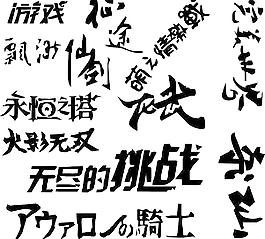 游戏
征途
飘渺
仙剑
萌之精英战
完美世界
永恒之塔
玄武
火影无双
无尽的挑战
アヴァロンの騎士